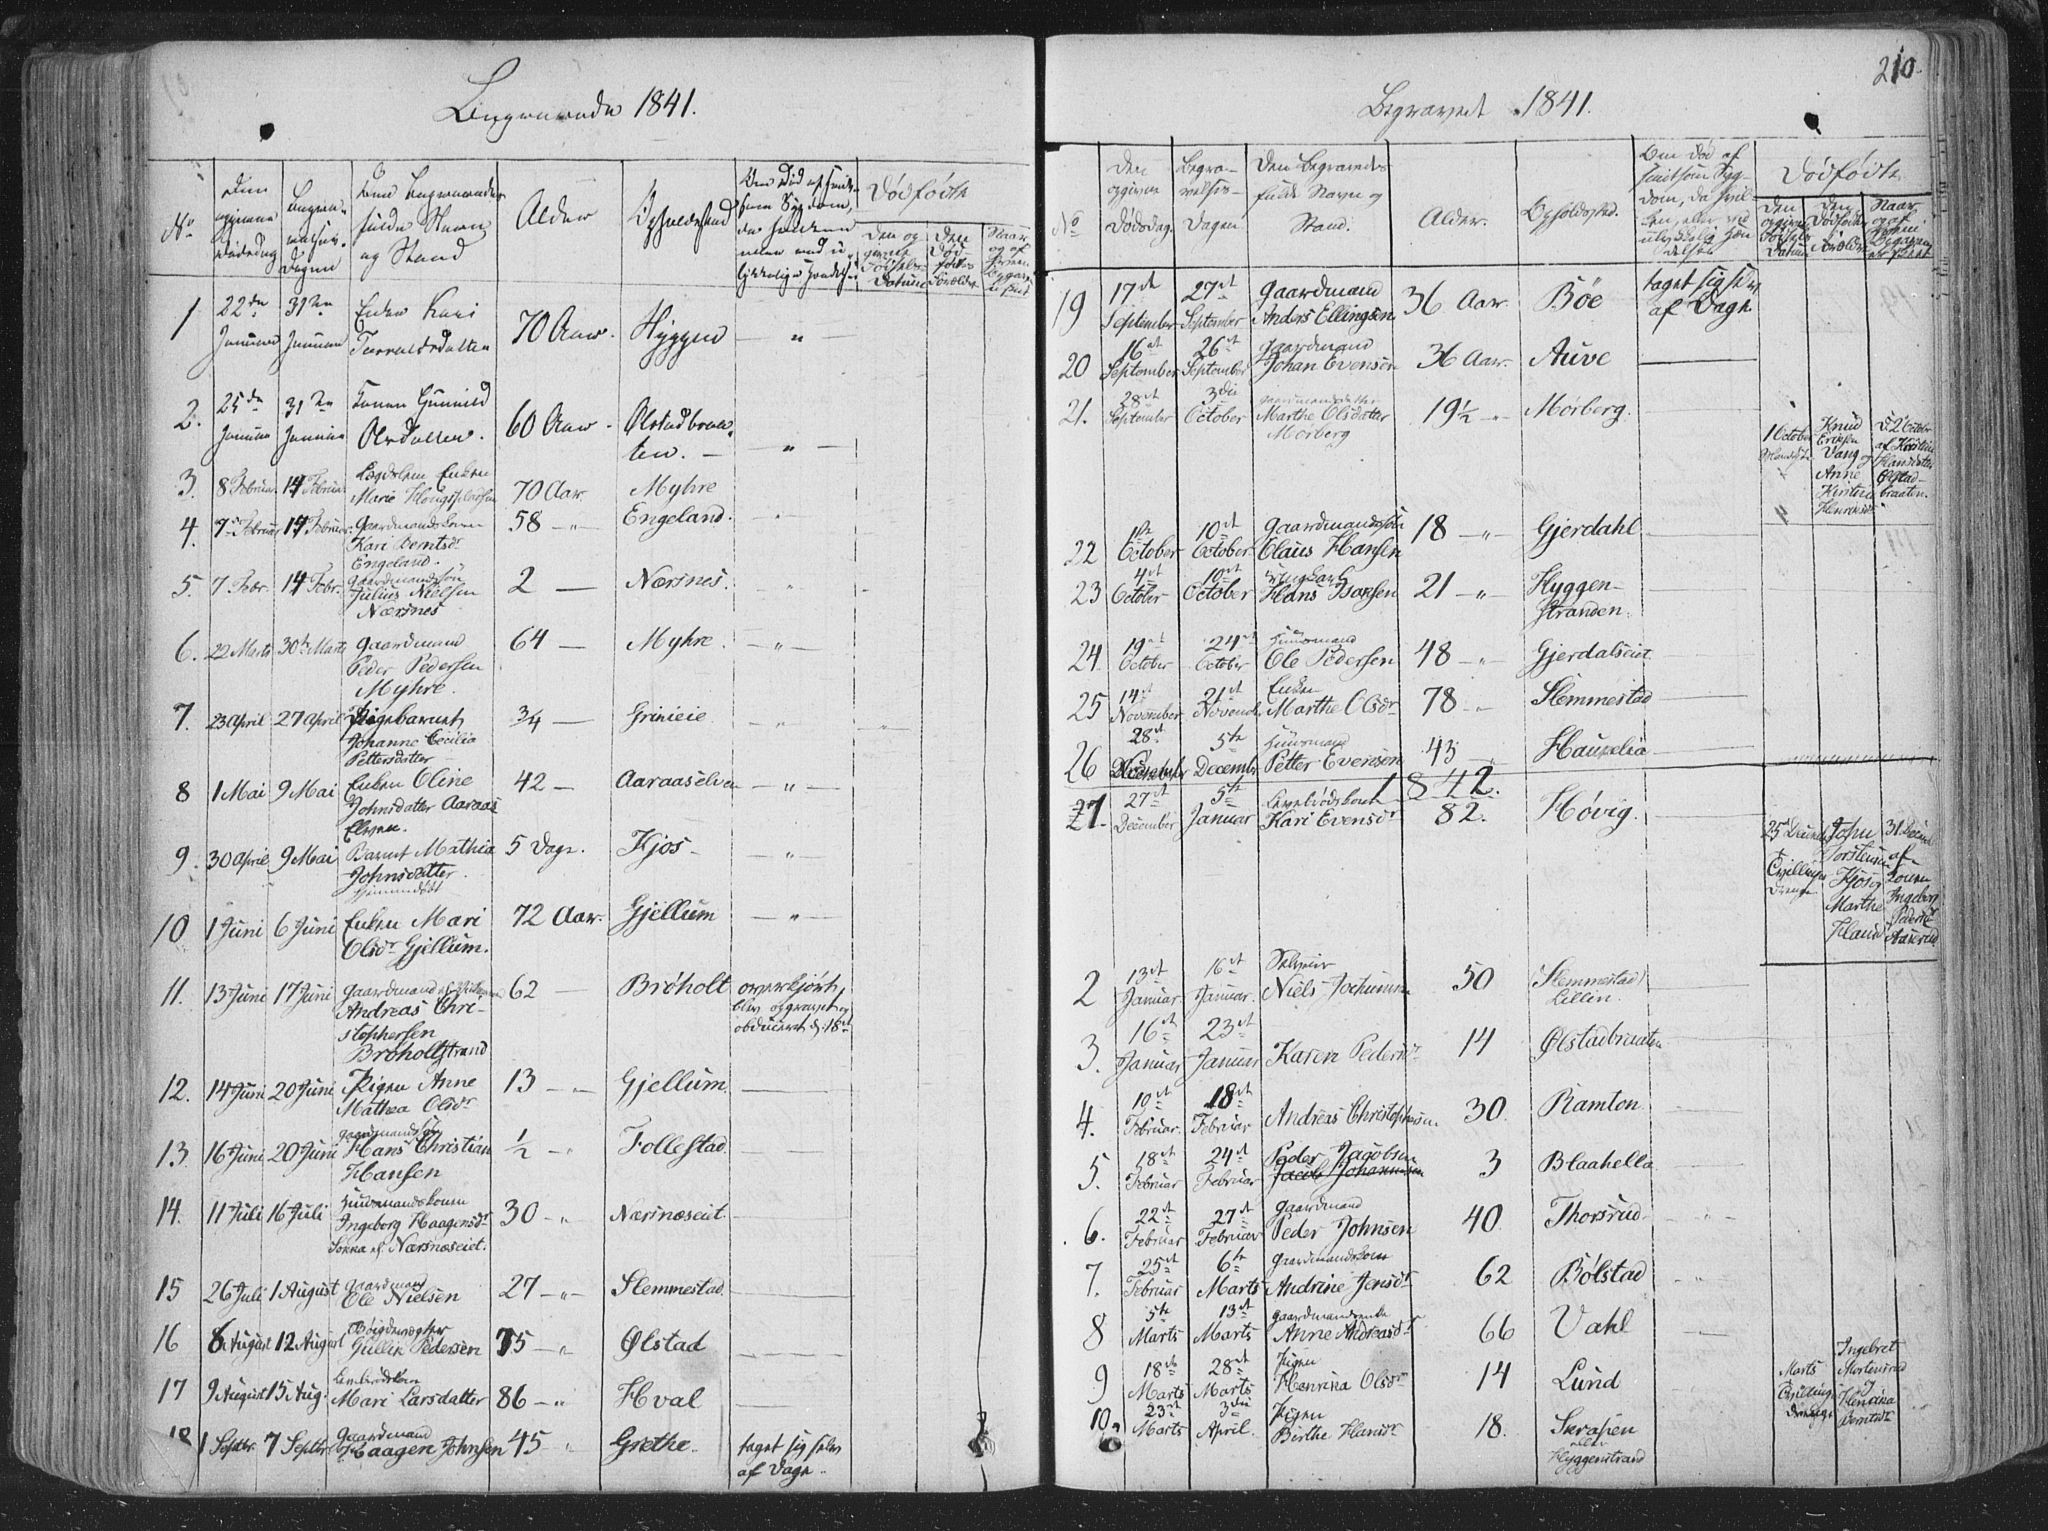 Begravede 1841.
No
Den opgivne Dødsdag
Begravelses-Dagen
Den Begravedes fulde Navn og Stand
Alder
Opholdssted
Dødfødte
1 22de Januar 31te Januar Enke Kari Torvaldsdatter 70 Aar. Hyggen — „ —
2. 25de Januar 31te Januar Konen Gunnild Olsdatter. 60 Aar. Ølstadbraaten. — „ —
3. 8 Februar 14 Februar Enken Marie 70 Aar Myhre
4. 7 Februar 14 Februar. Gaardmandskonen Kari Berntsdr Engeland. 58 — „ — Engeland.
5. 7 Febr. 14 Febr. Gaardmandssøn Julius Nielsen Nærsnes 2 — Nærsnes.
6. 22 Marts 30te Marts Gaardmand Peder Pedersen Myhre. 64 — Myhre. — „ —
7. 23 April 27 April Pigebarnet Johanne Cecilia Pettersdatter 3/4 — Grinieie
8 1 Mai 9 Mai Enken Oline Johnsdatter Aaraas Elven. 42 — Aaraaselven — „ —
9. 30 April 9 Mai Barnet Mathia Johnsdatter. Hjemmedøbt 5 Dage. Kjos — „ —
10 1 Juni 6 Juni Enken Mari Olsdr Gjellum. 72 Aar. Gjellum — „ —
11. 13 Juni 17 Juni Gaardmand Andreas Christophersen Brøholtstrand 62 — Brøholt overkjørt, blev opgravet og obduceret d: 18de
12. 14 Juni 20 Juni Pigen Anne Mathea Olsdr 13 — „ Gjellum.
13. 16 Juni 20 Juni Gaardmandssøn Hans Christian Hansen 1/2 — „ Follestad
14. 11 Juli 16 Juli Huusmandskonen Ingeborg Haagensdr Nærsnæseiet. 30 — „ Nærsnæseiet.
15 26 Juli 1 August Gaardmand Ole Nielsen 27 — „ — Slemmestad.
16 8 August 12 August Gullik Pedersen 75 — „ Ølstad
17 9 August 15 Aug. Mari Larsdatter 86 — „ Hval
18 1 Septbr. 7 Septbr. Gaardmand Haagen Johnsen 45 „ Grethe. taget sig selv af Dage.
Begravet 1841.
210.
No
Den opgivne Dødsdag.
Begravelses-Dagen
Den Begravedes fulde Navn og Stand.
Alder.
Opholdssted.
Om død af smitsom Sygdom, da hvilken, eller ved ulykkelig Hændelse
Dødfødte
19 17de September 27de September Gaardmand Anders Ellingsen 36 Aar. Bøe taget sig selv af Dage.
20 16de September 26de September Gaardmand Johan Evensen 36 Aar. Auve
21. 28de September 3die October Marthe Olsdatter Mørberg 19½ „ Mørberg.
1 October Knud Eriksen Vang og Anne Kirstine Henriksdr. d: 2 October af Kirstine Hansdatter Ølstadbraaten.
22 October 10de October Gaardmandssøn Claus Hansen 18 — „ Gjerdahl
23 4de October 10de October Ungkarl Hans Isaksen 21 — „ Hyggenstranden.
24. 19de October 24de October Huusmand Ole Pedersen 48 — „ Gjerdalseiet.
25 14de November 21de Novembr. Enken Marthe Olsdr 78 — „ Slemmestad
26 28de November 5te December Huusmand Petter Evensen 43 „ Haukelia
1842.
27 1. 27de December 5te Januar Kari Evensdr 82. Høvig.
25de December John Torstensen Kjos og Marthe Hansdr 31 Decem af Konen Ingeborg Pedersdr Aaserud
2 13de Januar 16de Januar. Niels Jochumsen 50 Slemmestad
3. 16de Januar 23de Januar Karen Pedersdr 14 Ølstadbraaten
4. 10de Februar. 18de Februar Andreas Christophersen 30. Ramton
5. 18de Februar 24de Februar Peder Jacobsen 3 Blaahella
6. 22de Februar 27de Februar Gaardmand Peder Johnsen 40. Thorsrud
7. 25de Februar 6te Marts Gaardmandskone Andrine Jensdr 62 Bølstad
8 5te Marts 13de Marts Gaardmandsenke Anne Andreasdr 66 Vahl
9 18de Marts 28de Marts Pigen Henrika Olsdr 14 Lund
Marts Ingebret Mortensrud og Henrika Berntsdr
10. 23de Marts 3die April. Pigen Birthe Hansdr 18. Skrapen eller Hyggenstrand